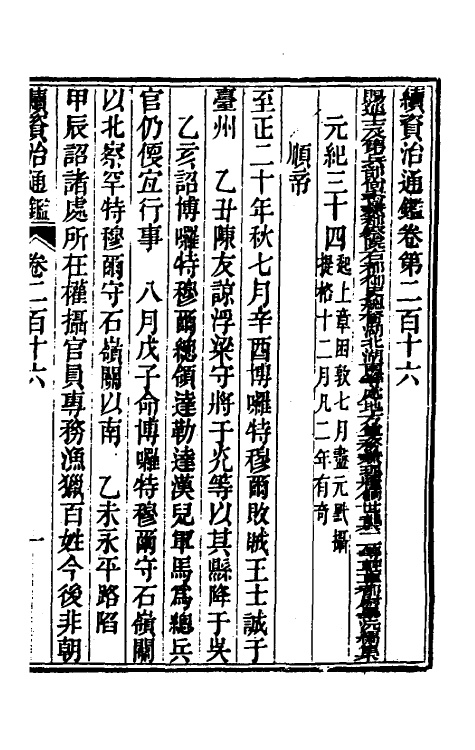 續資治通鑑卷第二百十六
賜進士及第兵部尚書兼都察院右都御史總督湖北湖南等處地方軍務兼理糧餉世襲二等輕車都尉畢沅編集
元紀三十四起上章困敦七月盡元黓攝提格十二月凡二年有奇
順帝
至正二十年秋七月辛酉博囉特穆爾敗賊王士誠于
臺州　乙丑陳友諒浮梁守將于光等以其縣降于吳
乙亥詔博囉特穆爾總領達勒達漢兒軍馬爲總兵
官仍便宜行事　八月戊子命博囉特穆爾守石嶺關
以北察罕特穆爾守石嶺關以南　乙未永平路陷
甲辰詔諸處所在權攝官員專務漁獵百姓今後非朝
續資治通鑑　卷二百十六　一